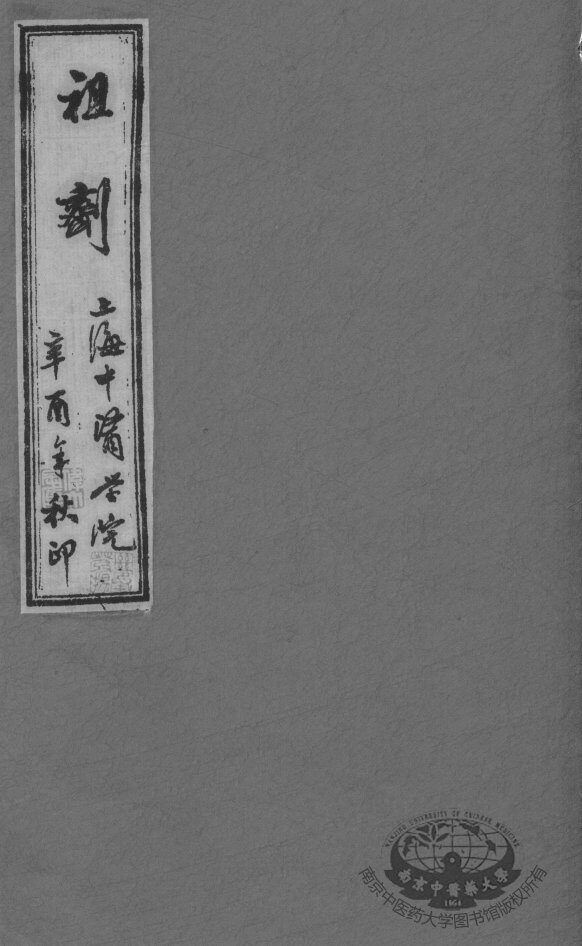 祖劑
上海中医学院
辛酉年秋印
NANJING UNIVERSITY OF CHINESE MEDICINE
南京中醫藥大學
1954
南京中医药大学图书馆版权所有